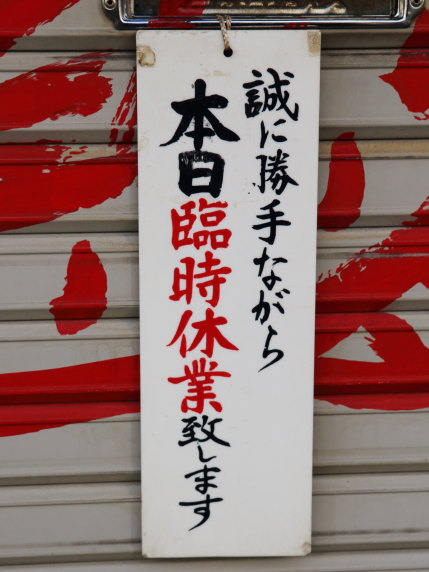 誠に勝手ながら
本日臨時休業致します